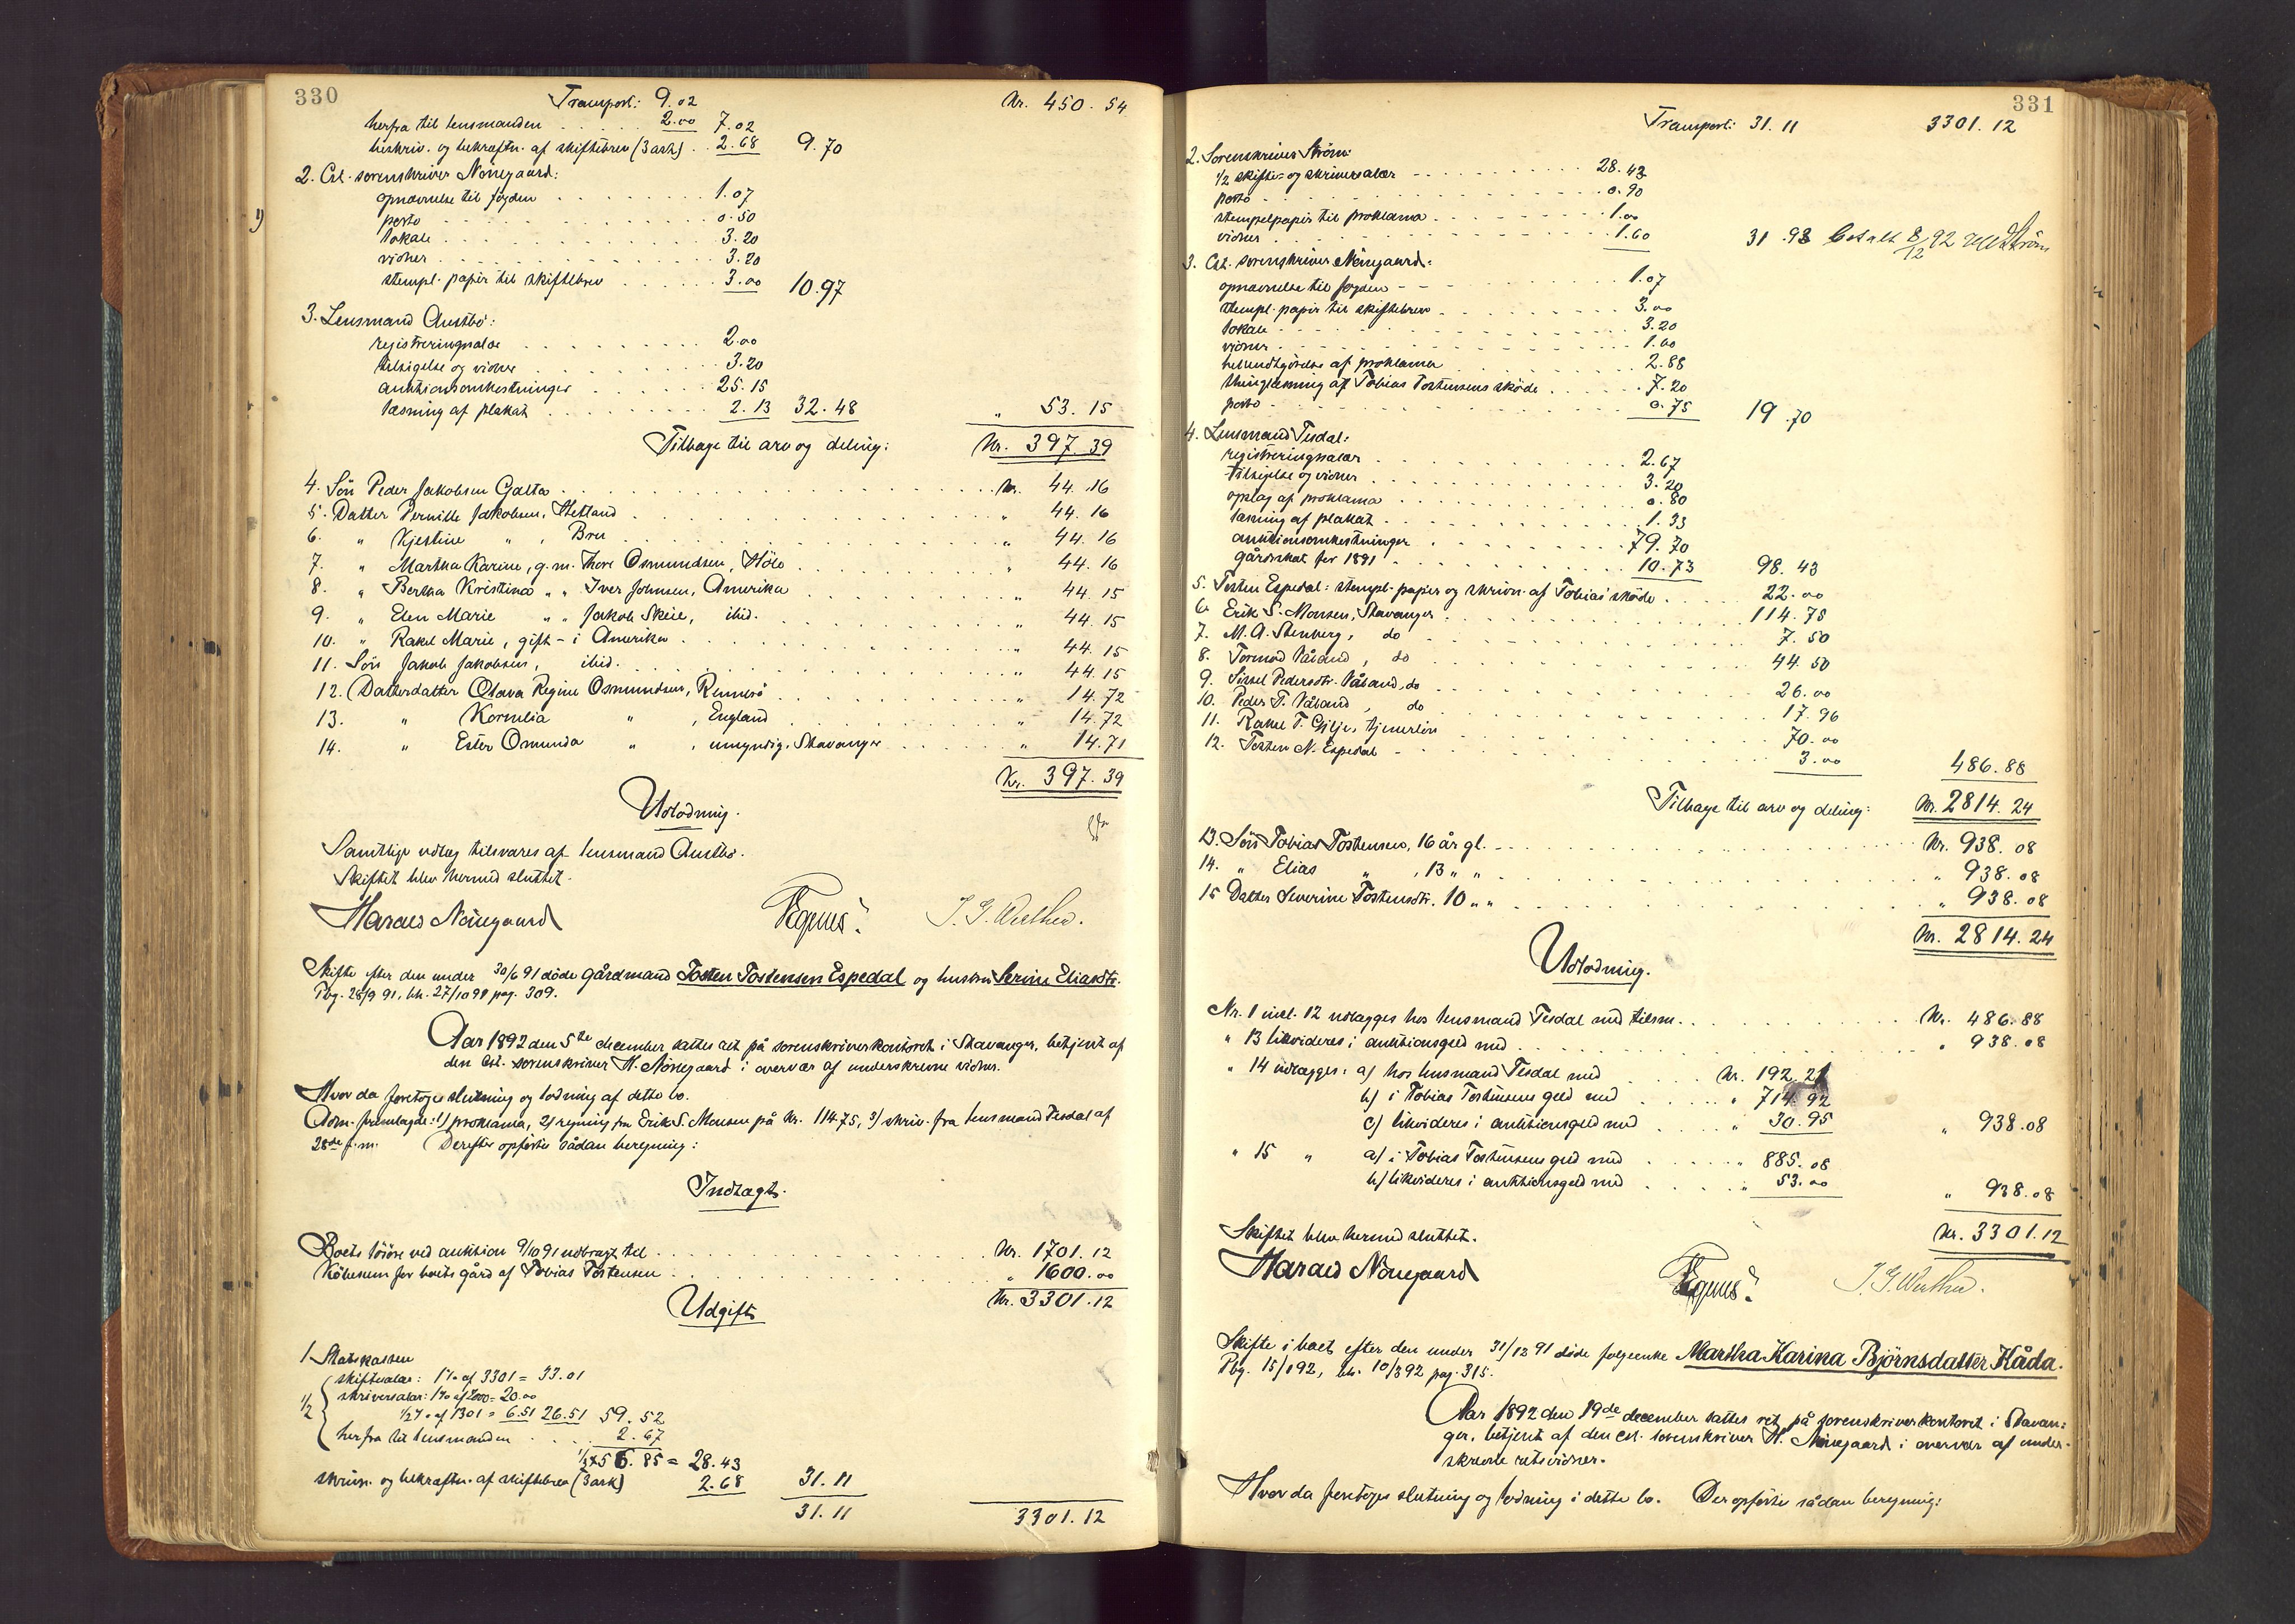 330
Transport: 9.02 Kr. 450.54
herfra til lensmanden 2.00 7.02
beskriv. og bekræftn. af skiftebrev (3 ark) 2.68 9.70
2. Cst. sorenskriver Nörregaard:
opnævnelse til fogden 1.07
porto 0.50
lokale 3.20
vidner 3.20
stempl. papir til skiftebrev 3.00 10.97
3. Lensmand Austbö:
registreringsalær 2.00
tilsigelse og vidner 3.20
auktionsomkostninger 25.15
læsning af plakat 2.13 32.48 " 53.15
Tilbage til arv og deling: Kr. 397.39
4. Sön Peder Jakobsen Galta Kr. 44.16
5. Datter Pernille Jakobsen, Hetland " 44.16
6. " Kjestine " , Bru " 44.16
7. " Martha Karine, g.m. Thore Osmundsen, Höle " 44.16
8. " Bertha Kristina " " Iver Johnsen, Amerika " 44.15
9. " Elen Marie " " Jakob Skeie, ibid. " 44.15
10. " Rakel Marie, gift - i Amerika " 44.15
11. Sön Jakob Jakobsen, ibid. " 44.15
12. Datterdatter Olava Regine Osmundsen, Rennesö " 14.72
13. " Kornelia " , England " 14.72
14. " Ester Osmunda " , umyndig, Stavanger " 14.71
Kr. 397.39
Udlodning.
Samtlige udlæg tilsvares af lensmand Austbö.
Skiftet blev hermed sluttet.
Harald Nörregaard J. G. Werther.
Skifte efter den under 30/6 91 döde gårdmand Tosten Tostensen Espedal og hustru Serine Eliasdtr.
Pbg. 28/9 91, bh. 27/10 91 pag. 309.
Aar 1892 den 5te december sattes ret på sorenskriverkontoret i Stavanger, betjent af
den cst. sorenskriver H. Nörregaard i overvær af underskrevne vidner.
Hvor da foretoges slutning og lodning af dette bo.
Adm. fremlagde: 1) proklama, 2) regning fra Erik S. Monsen på Kr. 114.75, 3) skriv. fra lensmand Tesdal af
28de f.m. Derefter opförtes sådan beregning:
Indtægt.
Boets lösöre ved auktion 9/10 91 udbragt til Kr. 1701.12
Köbesum for boets gård af Tobias Tostensen " 1600.00
Kr. 3301.12
Udgift
1. Statskassen
skiftesalær: 1% af 3301 = 33.01
1/2 skriversalær: 1% af 2000 = 20.00
1/2% af 1301 = 6.51 26.51 59.52
herfra til lensmanden 2.67
1/2 x 56.85 = 28.43
skrivn. og bekræftn. af skiftebrev (3 ark) 2.68 31.11
31.11 3301.12
331
Transport: 31.11 3301.12
2. Sorenskriver Ström:
1/2 skifte- og skriversalær 28.43
porto 0.90
stempelpapir til proklama 1.00
vidner 1.60 31.93 betalt 8/12 92 Ström
3. Cst. sorenskriver Nörregaard:
opnævnelse til fogden 1.07
stempl. papir til skiftebrev 3.00
lokale 3.20
vidner 1.60
bekendtgjörelse af proklama 2.88
thinglæsning af Tobias Tostensens sköde 7.20
porto 0.75 19.70
4. Lensmand Tesdal:
registreringsalær 2.67
tilsigelse og vidner 3.20
opslag af proklama 0.80
læsning af plakat 1.33
auktionsomkostninger 79.70
gårdskat for 1891 10.73 98.43
5. Tosten Espedal: stempl. papir og skrivn. af Tobias' sköde 22.00
6. Erik S. Monsen, Stavanger 114.75
7. M. A. Stenberg, do 7.50
8. Tormod Våland, do 44.50
9. Sissel Pedersdtr. Våland, do 26.00
10. Peder T. Våland, do 17.96
11. Rakel T. Gilje, tjenerlön 70.00
12. Tosten N. Espedal 3.00 486.88
Tilbage til arv og deling: Kr. 2814.24
13. Sön Tobias Tostensen, 16 år gl. Kr. 938.08
14. " Elias " , 13 " " " 938.08
15 Datter Severine Tostensdtr. 10 " " " 938.08
Kr. 2814.24
Udlodning.
Nr. 1 incl. 12 udlægges hos lensmand Tesdal med tilsm. Kr. 486.88
" 13 likvideres i auktionsgeld med " 938.08
" 14 udlægges: a) hos lensmand Tesdal med Kr. 192.21
b) i Tobias Tostensens geld med " 714.92
c) likvideres i auktionsgeld med " 30.95 " 938.08
" 15 " a) i Tobias Tostensens geld med " 885.08
b) likvideres i auktionsgeld med " 53.00 " 938.08
Kr. 3301.12
Skiftet blev hermed sluttet.
Harald Nörregaard J. G. Werther.
Skifte i boet efter den under 31/12 91 döde folgeenke Martha Karina Björnsdatter Kåda.
Pbg. 15/1 92, bh. 10/3 92 pag. 315.
Aar 1892 den 19de december sattes ret på sorenskriverkontoret i Stavan:
ger, betjent af den cst. sorenskriver H. Nörregaard i overvær af under-
skrevne retsvidner.
Hvor da foretoges slutning og lodning i dette bo. Der opförtes sådan beregning: